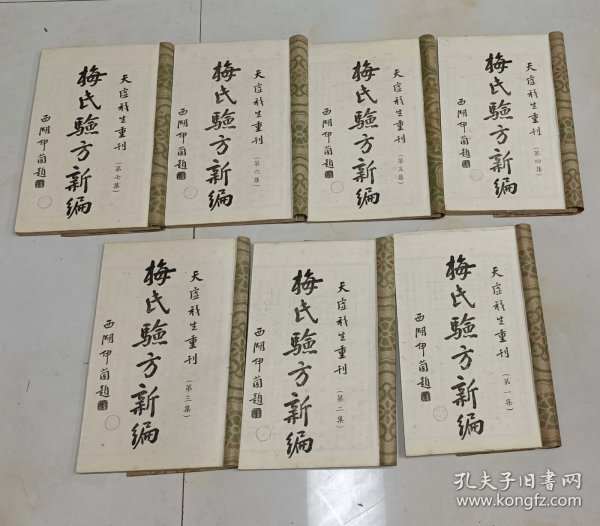 天虛我生重刊
(第四集)
梅氏驗方新編
西湖伊蘭題
天虛我生重刊
(第五集)
梅氏驗方新編
西湖伊蘭題
天虛我生重刊
(第六集)
梅氏驗方新編
西湖伊蘭題
天虛我生重刊
(第七集)
梅氏驗方新編
西湖伊蘭題
天虛我生重刊
(第一集)
梅氏驗方新編
西湖伊蘭題
天虛我生重刊
(第二集)
梅氏驗方新編
西湖伊蘭題
天虛我生重刊
(第三集)
梅氏驗方新編
西湖伊蘭題
孔夫子旧书网
www.kongfz.com